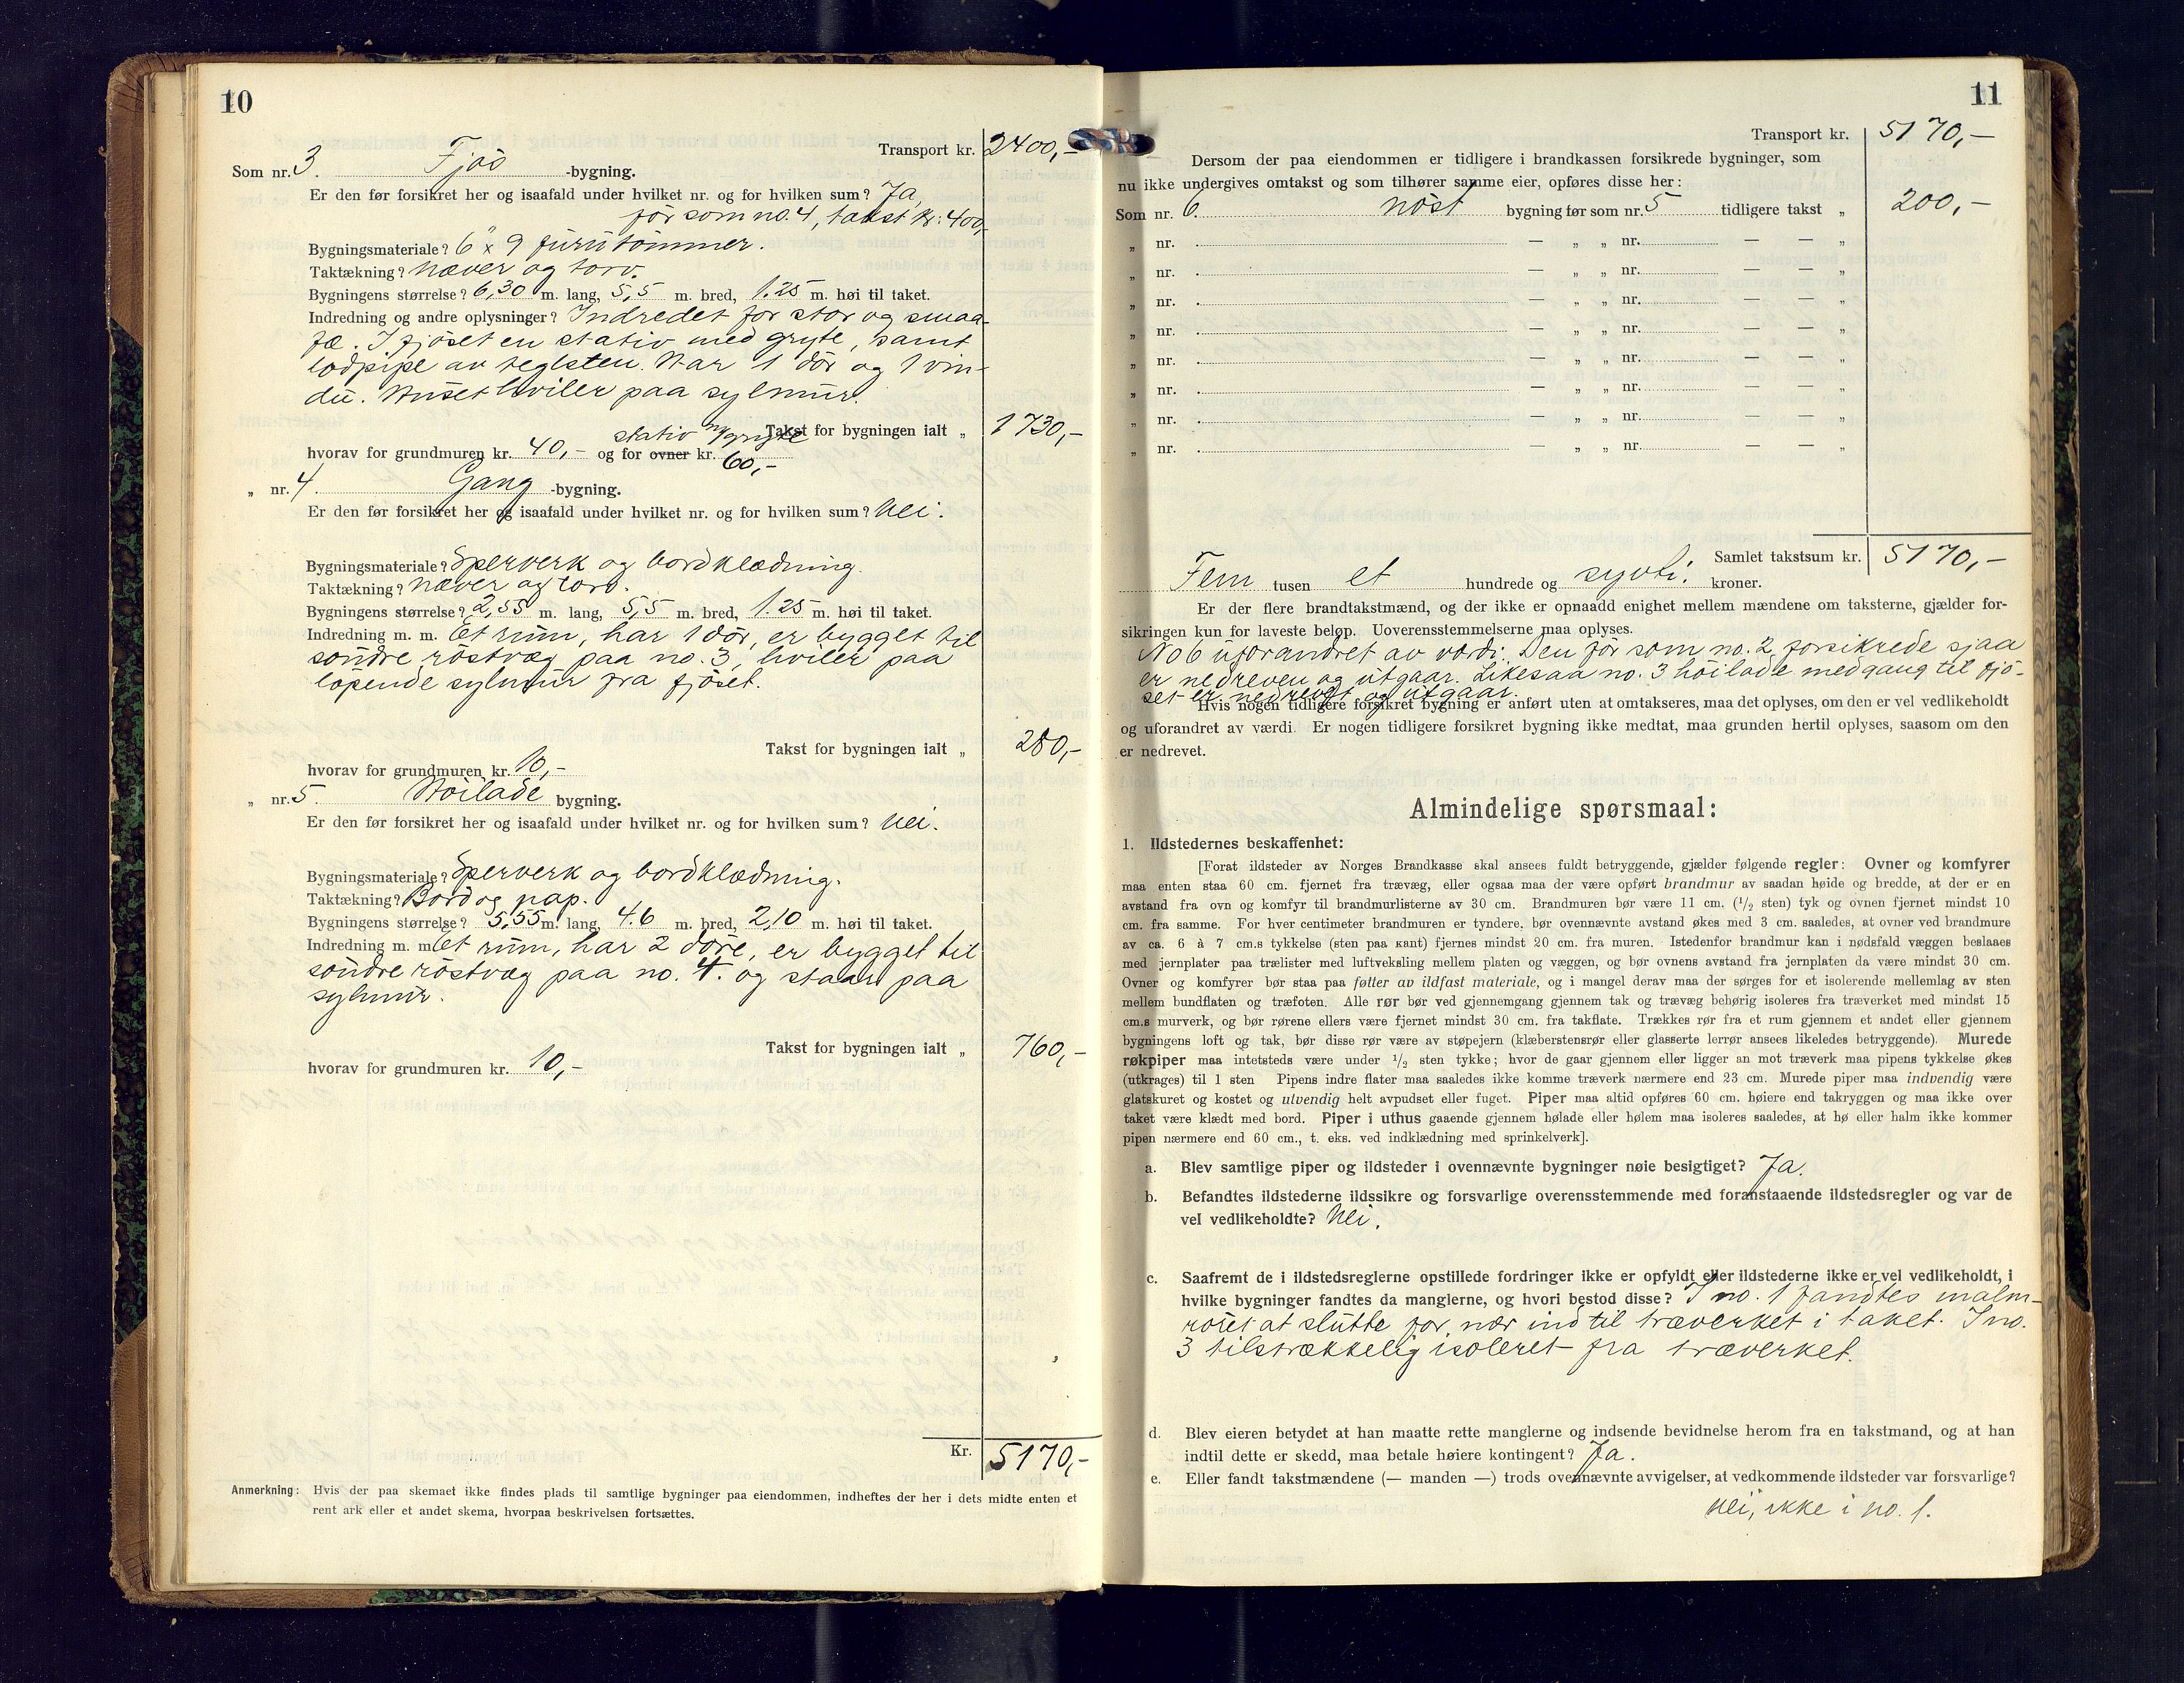 10
Transport kr. 2400,-
Som nr. 3. Fjös -bygning.
Er den før forsikret her og isaafald under hvilket nr. og for hvilken sum? Ja,
för som no. 4, takst kr. 400,-
Bygningsmateriale? 6" x 9 furutömmer.
Taktækning? Næver og torv.
Bygningens størrelse? 6,30 m. lang, 5,5 m. bred, 1.25 m. høi til taket.
Indredning og andre oplysninger? Indredet for stor og smaa-
fæ. I fjöset en stativ med gryte, samt
lodpipe av teglsten. Har 1 dör og 1 vin-
du. Huset hviler paa sylmur.
Takst for bygningen ialt „ 1730,-
stativ m/gryte
hvorav for grundmuren kr. 40,- og for ovner kr. 60,-
„ nr. 4. Gang -bygning.
Er den før forsikret her og isaafald under hvilket nr. og for hvilken sum? Nei.
Bygningsmateriale? Sperverk og bordklædning.
Taktækning? Næver og torv.
Bygningens størrelse? 2,55 m. lang, 5,5 m. bred, 1.25 m. høi til taket.
Indredning m. m. Et rum, har 1 dör, er bygget til
söndre röstvæg paa no. 3, hviler paa
löpende sylmur fra fjöset.
Takst for bygningen ialt „ 280,-
hvorav for grundmuren kr. 10,-
„ nr. 5. Höilade bygning.
Er den før forsikret her og isaafald under hvilket nr. og for hvilken sum? Nei.
Bygningsmateriale? Sperverk og bordklædning.
Taktækning? Bord og pap.
Bygningens størrelse? 5,55 m. lang, 4.6 m. bred, 2,10 m. høi til taket.
Indredning m. m. Et rum, har 2 döre, er bygget til
söndre röstvæg paa no. 4. og staar paa
sylmur.
Takst for bygningen ialt „ 760,-
hvorav for grundmuren kr. 10,-
Kr. 5170,-
Anmerkning: Hvis der paa skemaet ikke findes plads til samtlige bygninger paa eiendommen, indheftes der her i dets midte enten et
rent ark eller et andet skema, hvorpaa beskrivelsen fortsættes.
11
Transport kr. 5170,-
Dersom der paa eiendommen er tidligere i brandkassen forsikrede bygninger, som
nu ikke undergives omtakst og som tilhører samme eier, opføres disse her:
Som nr. 6. nöst bygning før som nr. 5 tidligere takst „ 200,-
„ nr. — „ „ nr. — — „
„ nr. — „ „ nr. — — „
„ nr. — „ „ nr. — — „
„ nr. — „ „ nr. — — „
„ nr. — „ „ nr. — — „
„ nr. — „ „ nr. — — „
„ nr. — „ „ nr. — — „
„ nr. — „ „ nr. — — „
Samlet takstsum kr. 5170,-
Fem tusen et hundrede og sytti. kroner.
Er der flere brandtakstmænd, og der ikke er opnaadd enighet mellem mændene om taksterne, gjælder for-
sikringen kun for laveste beløp. Uoverensstemmelserne maa oplyses.
No 6 uforandret av værdi. Den för som no. 2 forsikrede sjaa
er nedreven og utgaar. Likesaa no. 3 höilade med gang til fjö-
set er nedrevet og utgaar.
Hvis nogen tidligere forsikret bygning er anført uten at omtakseres, maa det oplyses, om den er vel vedlikeholdt
og uforandret av værdi. Er nogen tidligere forsikret bygning ikke medtat, maa grunden hertil oplyses, saasom om den
er nedrevet.
Almindelige spørsmaal:
1. Ildstedernes beskaffenhet:
[Forat ildsteder av Norges Brandkasse skal ansees fuldt betryggende, gjælder følgende regler: Ovner og komfyrer
maa enten staa 60 cm. fjernet fra trævæg, eller ogsaa maa der være opført brandmur av saadan høide og bredde, at der er en
avstand fra ovn og komfyr til brandmurlisterne av 30 cm. Brandmuren bør være 11 cm. (1/2 sten) tyk og ovnen fjernet mindst 10
cm. fra samme. For hver centimeter brandmuren er tyndere, bør ovennævnte avstand økes med 3 cm. saaledes, at ovner ved brandmure
av ca. 6 à 7 cm.s tykkelse (sten paa kant) fjernes mindst 20 cm. fra muren. Istedenfor brandmur kan i nødsfald væggen beslaaes
med jernplater paa trælister med luftveksling mellem platen og væggen, og bør ovnens avstand fra jernplaten da være mindst 30 cm.
Ovner og komfyrer bør staa paa føtter av ildfast materiale, og i mangel derav maa der sørges for et isolerende mellemlag av sten
mellem bundflaten og træfoten. Alle rør bør ved gjennemgang gjennem tak og trævæg behørig isoleres fra træverket med mindst 15
cm.s murverk, og bør rørene ellers være fjernet mindst 30 cm. fra takflate. Trækkes rør fra et rum gjennem et andet eller gjennem
bygningens loft og tak, bør disse rør være av støpejern (klæberstensrør eller glasserte lerrør ansees likeledes betryggende). Murede
røkpiper maa intetsteds være under 1/2 sten tykke; hvor de gaar gjennem eller ligger an mot træverk maa pipens tykkelse økes
(utkrages) til 1 sten Pipens indre flater maa saaledes ikke komme træverk nærmere end 23 cm. Murede piper maa indvendig være
glatskuret og kostet og utvendig helt avpudset eller fuget. Piper maa altid opføres 60 cm. høiere end takryggen og maa ikke over
taket være klædt med bord. Piper i uthus gaaende gjennem hølade eller hølem maa isoleres saaledes, at hø eller halm ikke kommer
pipen nærmere end 60 cm., t. eks. ved indklædning med sprinkelverk].
a. Blev samtlige piper og ildsteder i ovennævnte bygninger nøie besigtiget? Ja.
b. Befandtes ildstederne ildssikre og forsvarlige overensstemmende med foranstaaende ildstedsregler og var de
vel vedlikeholdte? Nei.
c. Saafremt de i ildstedsreglerne opstillede fordringer ikke er opfyldt eller ildstederne ikke er vel vedlikeholdt, i
hvilke bygninger fandtes da manglerne, og hvori bestod disse? I no. 1 fandtes malm-
röret at slutte for nær ind til træverket i taket. I no.
3 tilstrækkelig isoleret fra træverket.
d. Blev eieren betydet at han maatte rette manglerne og indsende bevidnelse herom fra en takstmand, og at han
indtil dette er skedd, maa betale høiere kontingent? Ja.
e. Eller fandt takstmændene (— manden —) trods ovennævnte avvigelser, at vedkommende ildsteder var forsvarlige?
Nei, ikke i no. 1.